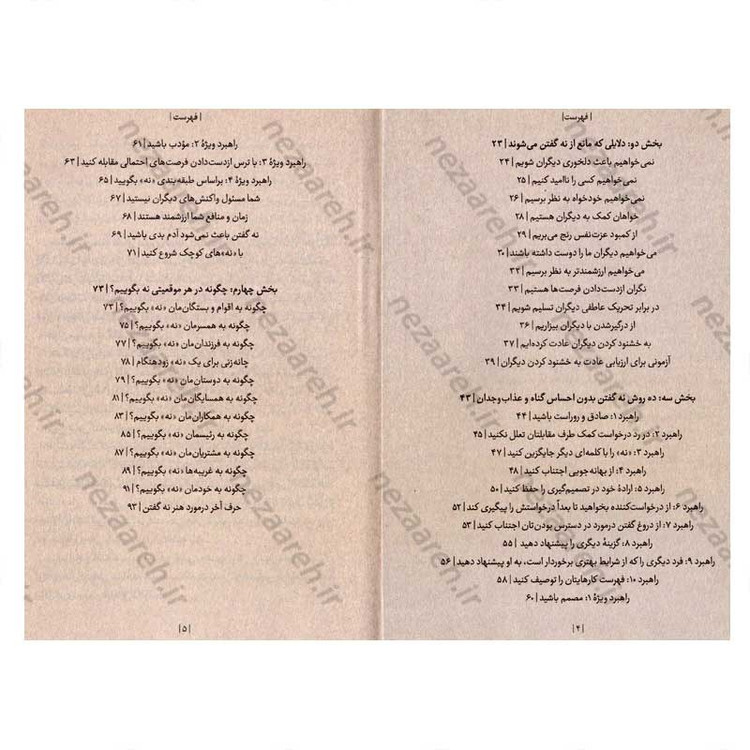 | فهرست |
بخش دو: دلایلی که مانع از نه گفتن می‌شوند | ۲۳
نمی‌خواهیم باعث دلخوری دیگران شویم | ۲۴
نمی‌خواهیم کسی را ناامید کنیم | ۲۵
نمی‌خواهیم خودخواه به نظر برسیم | ۲۶
خواهان کمک به دیگران هستیم | ۲۸
از کمبود عزت‌نفس رنج می‌بریم | ۲۹
می‌خواهیم دیگران ما را دوست داشته باشند | ۳۰
می‌خواهیم ارزشمندتر به نظر برسیم | ۳۲
نگران ازدست‌دادن فرصت‌ها هستیم | ۳۳
در برابر تحریک عاطفی دیگران تسلیم شویم | ۳۴
از درگیرشدن با دیگران بیزاریم | ۳۶
به خشنود کردن دیگران عادت کرده‌ایم | ۳۷
آزمونی برای ارزیابی عادت به خشنود کردن دیگران | ۳۹
بخش سه: ده روش نه گفتن بدون احساس گناه و عذاب‌وجدان | ۴۳
راهبرد ۱: صادق و روراست باشید | ۴۴
راهبرد ۲: در رد درخواست کمک طرف مقابلتان تعلل نکنید | ۴۵
راهبرد ۳: «نه» را با کلمه‌ای دیگر جایگزین کنید | ۴۷
راهبرد ۴: از بهانه‌جویی اجتناب کنید | ۴۸
راهبرد ۵: ارادهٔ خود در تصمیم‌گیری را حفظ کنید | ۵۰
راهبرد ۶: از درخواست‌کننده بخواهید تا بعداً درخواستش را پیگیری کند | ۵۲
راهبرد ۷: از دروغ گفتن درمورد در دسترس بودن‌تان اجتناب کنید | ۵۳
راهبرد ۸: گزینهٔ دیگری را پیشنهاد دهید | ۵۵
راهبرد ۹: فرد دیگری را که از شرایط بهتری برخوردار است، به او پیشنهاد دهید | ۵۶
راهبرد ۱۰: فهرست کارهایتان را توصیف کنید | ۵۸
راهبرد ویژهٔ ۱: مصمم باشید | ۶۰
| ۴ |
| فهرست |
راهبرد ویژهٔ ۲: مؤدب باشید | ۶۱
راهبرد ویژهٔ ۳: با ترس ازدست‌دادن فرصت‌های احتمالی مقابله کنید | ۶۳
راهبرد ویژهٔ ۴: براساس طبقه‌بندی «نه» بگویید | ۶۵
شما مسئول واکنش‌های دیگران نیستید | ۶۷
زمان و منافع شما ارزشمند هستند | ۶۸
نه گفتن باعث نمی‌شود آدم بدی باشید | ۶۹
با «نه»های کوچک شروع کنید | ۷۱
بخش چهارم: چگونه در هر موقعیتی نه بگوییم؟ | ۷۳
چگونه به اقوام و بستگان‌مان «نه» بگوییم؟ | ۷۳
چگونه به همسرمان «نه» بگوییم؟ | ۷۵
چگونه به فرزندان‌مان «نه» بگوییم؟ | ۷۷
چانه‌زنی برای یک «نه» زودهنگام | ۷۸
چگونه به دوستان‌مان «نه» بگوییم؟ | ۷۹
چگونه به همسایگان‌مان «نه» بگوییم؟ | ۸۱
چگونه به همکاران‌مان «نه» بگوییم؟ | ۸۳
چگونه به رئیسمان «نه» بگوییم؟ | ۸۵
چگونه به مشتریان‌مان «نه» بگوییم؟ | ۸۷
چگونه به غریبه‌ها «نه» بگوییم؟ | ۸۹
چگونه به خودمان «نه» بگوییم؟ | ۹۱
حرف آخر درمورد هنر نه گفتن | ۹۳
| ۵ |
nezaareh.ir